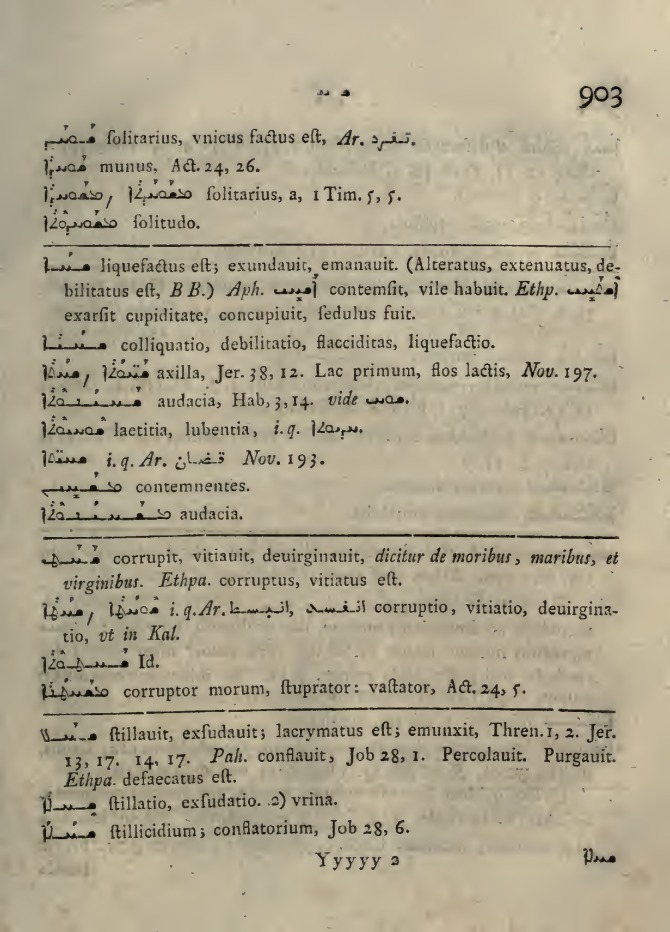 ܫ ܚ 903
ܫܘܚܕ ſolitarius, vnicus factus eſt, Ar. تفرد.
ܫܘܚܕܐ munus, Act. 24, 26.
ܡܫܘܚܕܐ, ܡܫܘܚܕܬܐ ſolitarius, a, 1 Tim. 5, 5.
ܡܫܘܚܕܘܬܐ ſolitudo.
ܫܚܐ liquefactus eſt; exundauit, emanauit. (Alteratus, extenuatus, de-
bilitatus eſt, B B.) Aph. contemſit, vile habuit. Ethp.
exarſit cupiditate, concupiuit, ſedulus fuit.
ܫܚܝܐ colliquatio, debilitatio, flacciditas, liquefactio.
axilla, Jer. 38, 12. Lac primum, flos lactis, Nov. 197.
audacia, Hab, 3, 14. vide
laetitia, lubentia, i. q.
i. q. Ar. Nov. 193.
contemnentes.
audacia.
ܫܚܛ corrupit, vitiauit, deuirginauit, dicitur de moribus, maribus, et
virginibus. Ethpa. corruptus, vitiatus eſt.
i. q. Ar. corruptio, vitiatio, deuirgina-
tio, vt in Kal.
ܫܚܝܛܘܬܐ Id.
ܡܫܚܛܢܐ corruptor morum, ſtuprator: vaſtator, Act. 24, 5.
ܫܚܠ ſtillauit, exſudauit; lacrymatus eſt; emunxit, Thren. 1, 2. Jer.
13, 17. 14, 17. Pah. conflauit, Job 28, 1. Percolauit. Purgauit.
Ethpa. defaecatus eſt.
ܫܚܠܐ ſtillatio, exſudatio. 2) vrina.
ܫܚܠܐ ſtillicidium; conflatorium, Job 28, 6.
Yyyyy 2 ܫܚܠܐ